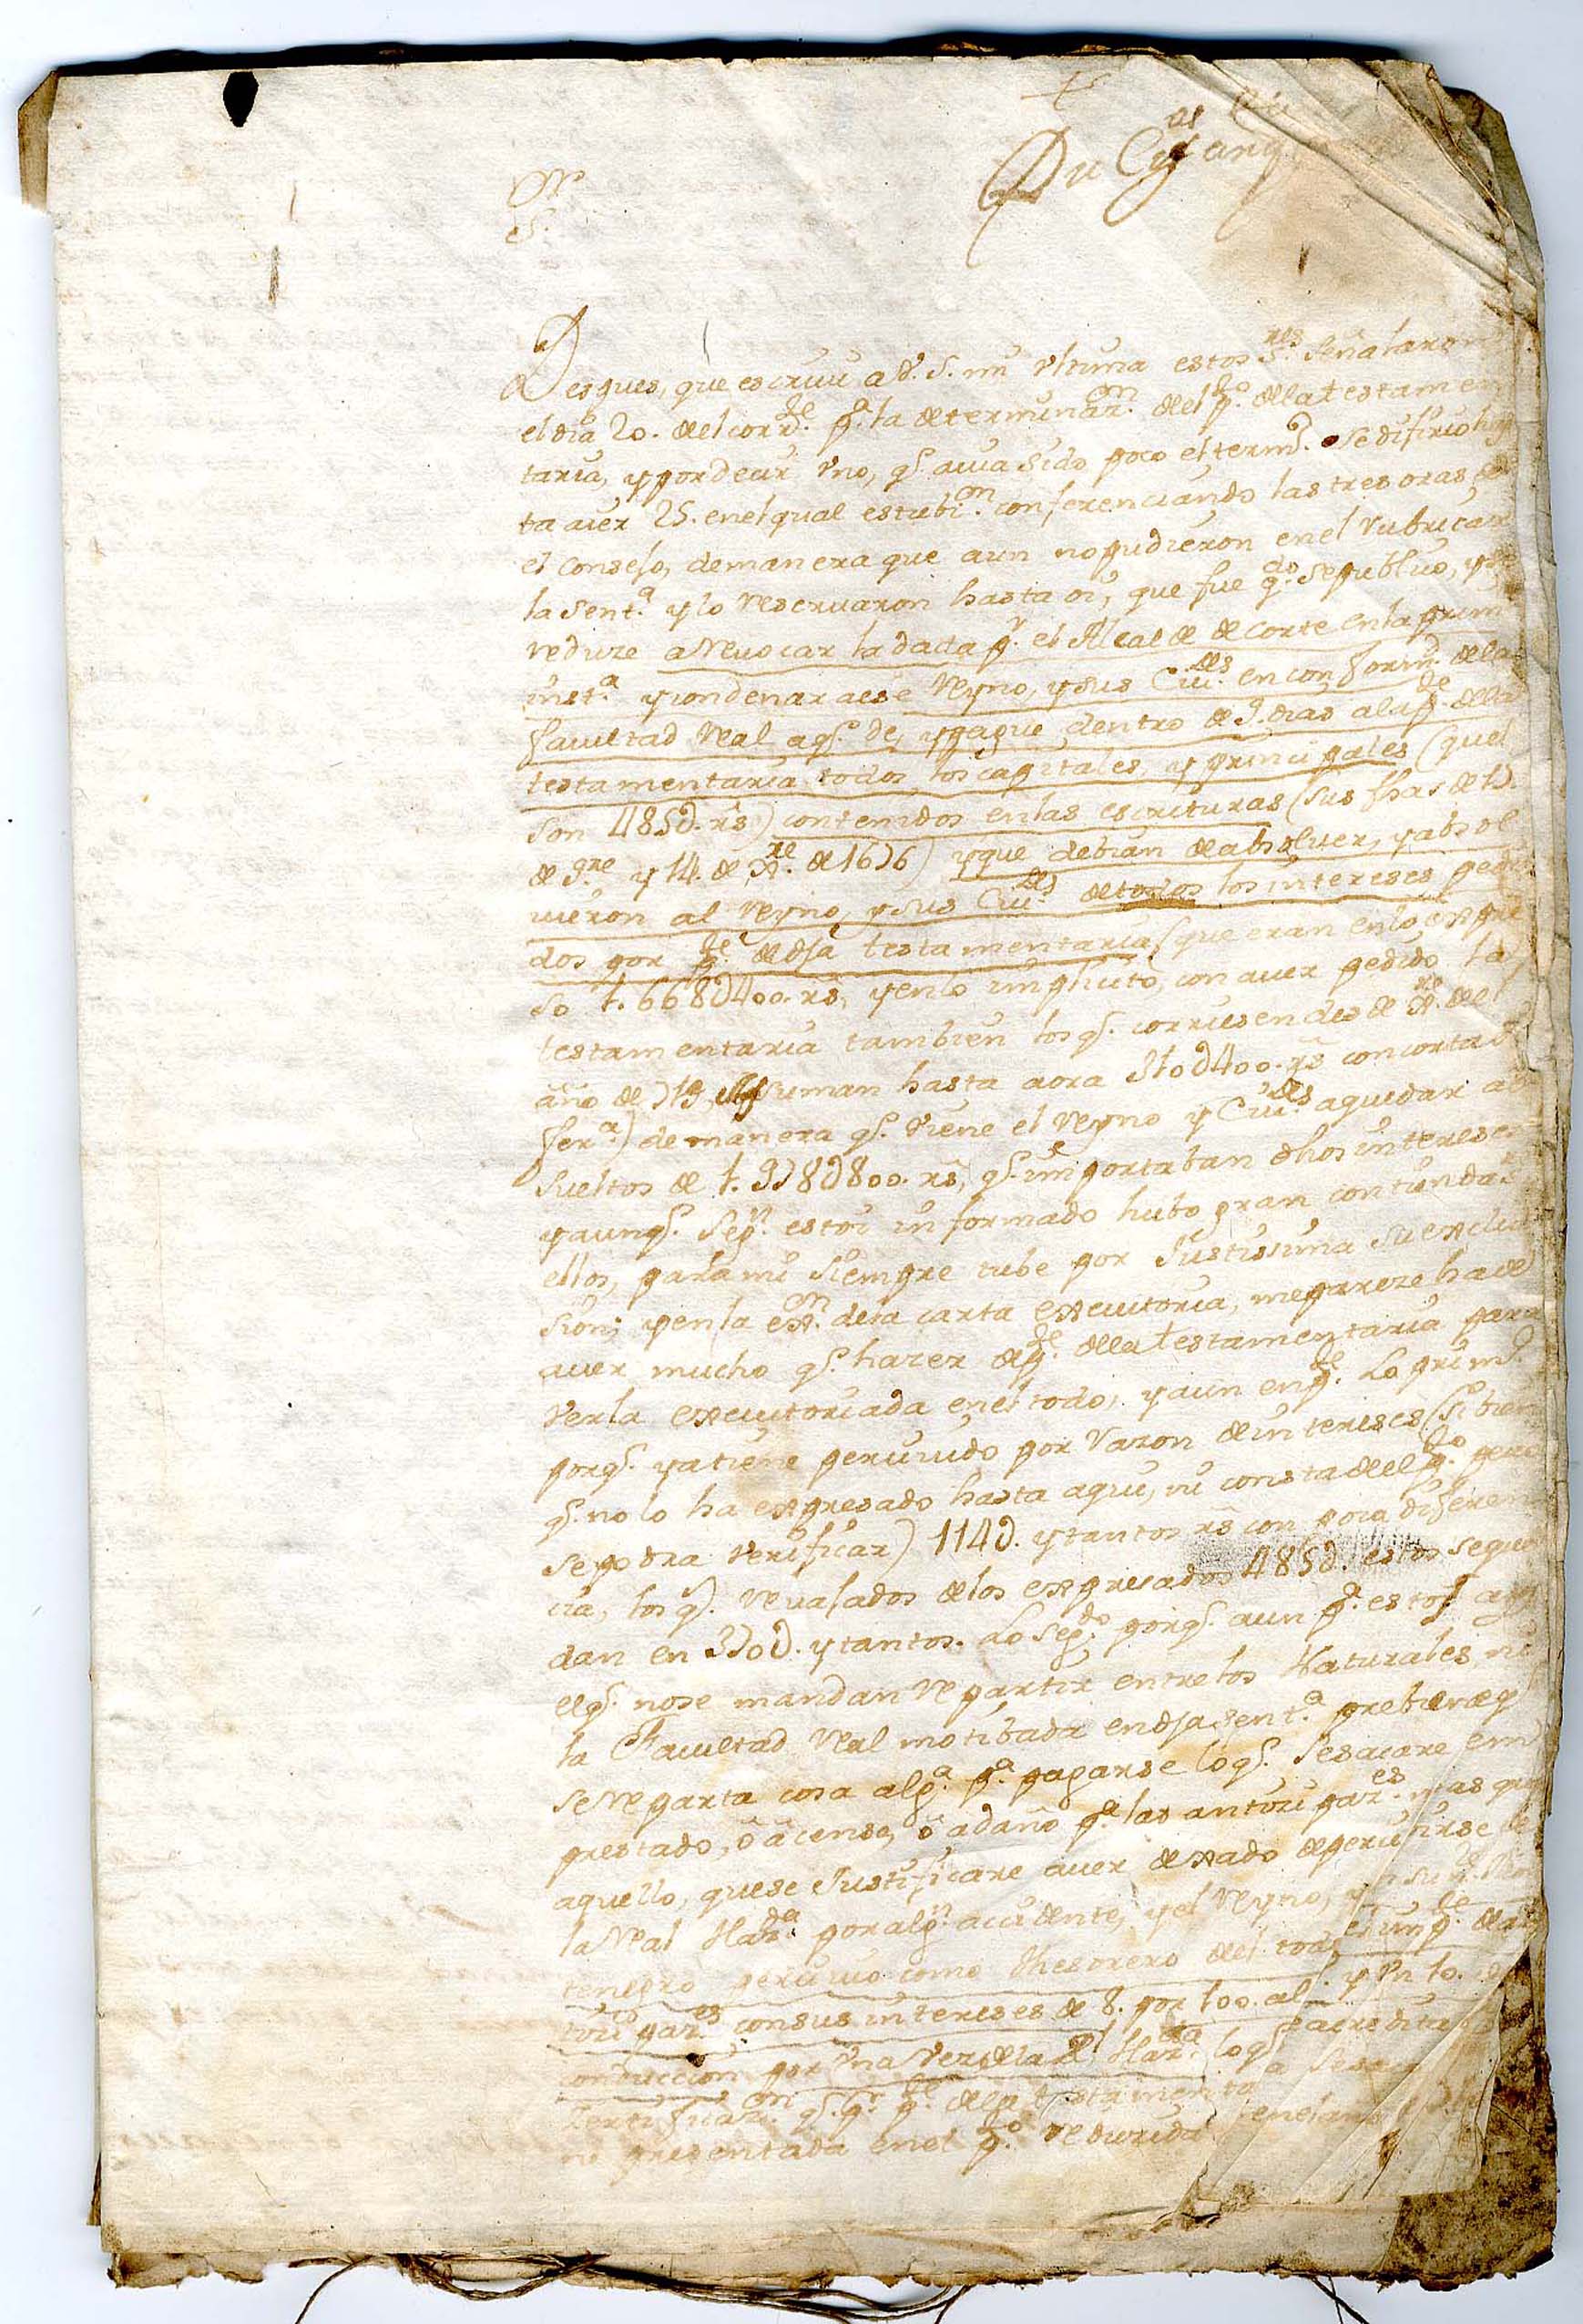 +
Sr
S.
Despues, que escriui a V. S. mi vltima estos Sres. señalaron
el dia 20. del corrte. pa. la determinaon. del pto. de la testamen
taria, y por decir vno, qe. auia sido poco el termo. se difirio has
ta aier 25. en el qual estubion. conferenciando las tres oras de
el Consejo, de manera que aun no pudieron en el rubricar
la senta. y lo reseruaron hasta oi, que fue qdo. se publico, y se
reduze a reuocar la dada pr. el Alcalde de Corte en la prima.
insta. y condenar a ese Reyno, y sus Ciudes. en conformd. de la
facultad Real a qe. de, y pague dentro de 9. dias a la pte. de la
testamentaria todos los capitales, y principales (que
son 485d. rs.) contenidos en las escrituras (sus fhas de 12.
de 9re y 14. de Xre. de 1676) y que debian de absoluer, y absol
uieron al Reyno, y sus Ciudes. de todos los intereses pedi
dos por pte. de dha testamentaria (que eran en lo expre
so 1.668d400. rs, y en lo implicito, con auer pedido la
testamentaria tambien los qe. corriesen desde Xre. del
año de 719, suman hasta aora 310d400. rs con corta di
fera.) de manera qe. viene el Reyno y Ciudes. a quedar ab
sueltos de 1.978d800. rs, qe. importaban dhos intereses
y aunqe. segn. estoi informado hubo gran contienda
ellos, para mi siempre tube por Justissima su exclu
sion; y en la exon. de la carta executoria, me pareze ha de
auer mucho qe. hazer de pte. de la testamentaria para
verla executoriada en el todo, y aun en pte. Lo primo.
porqe. ya tiene perciuido por razon de intereses (si bien
qe. no lo ha expresado hasta aqui, ni consta de el pto. pero
se podra verificar) 114d. y tantos rs con poca diferen
cia, los qe. reuajados de los expresados 485d. estos segue
dan en 370d. y tantos. Lo segdo. porqe. aun pa. estos aqe
el qe. no se mandan repartir entre los Naturales, ni
la Facultad Real motibada en dha senta. prebiene qe
se reparta cosa alga. pa. pagarse lo qe. se sacare em
prestado, o a censo, o a daño pa. las anticipaes. mas qe
aquello, que se Justificare auer dexado de perciuirse de
la Real Hazda. por algn. accidente, y el Reyno,
tenegro perciuio como Thesorero del todo
ticipaes. con sus intereses de 8. por 100. al
conduccion por vna vez de la Rl. Hazda. lo qe. acredita
zertificaon. qe. pr. pte. de la testamenta
no presentada en el pto. reduzida